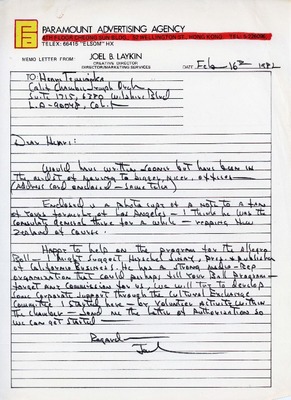 PARAMOUNT ADVERTISING AGENCY
TELEX: 66415 "ELSOM" HX
MEMO LETTER FROM: JOEL B. LAYKIN
CREATIVE DIRECTOR
DIRECTOR/MARKETING SERVICES
DATE Feb 16th 1982
TO: Henry
Calif Chamber Symph Orch
Suite 1715, 6380 Wilshire Blvd
L.A. 90048, Calif
Dear Henri:
Would have written sooner but have been in
the midst of moving to bigger, nicer offices
(Address card enclosed - same telex)
Enclosed is a photo copy of a note to a
of yours formerly of Los Angeles - I think he was the
consulate general there for a while - repping New
Zealand of course!
Happy to help on the program for the Allegro
Ball - I might suggest Herschel, Pres. & publisher
of California Business. He has a strong media-rep
organisation that could perhaps sell your Ball Program -
forget any commission for us, we will try to develop
some corporate support through the Cultural Exchange
Committee I started here - or volunteer activity within
the chamber - send me the letter of Authorisation so
we can get started
Regards
Joel